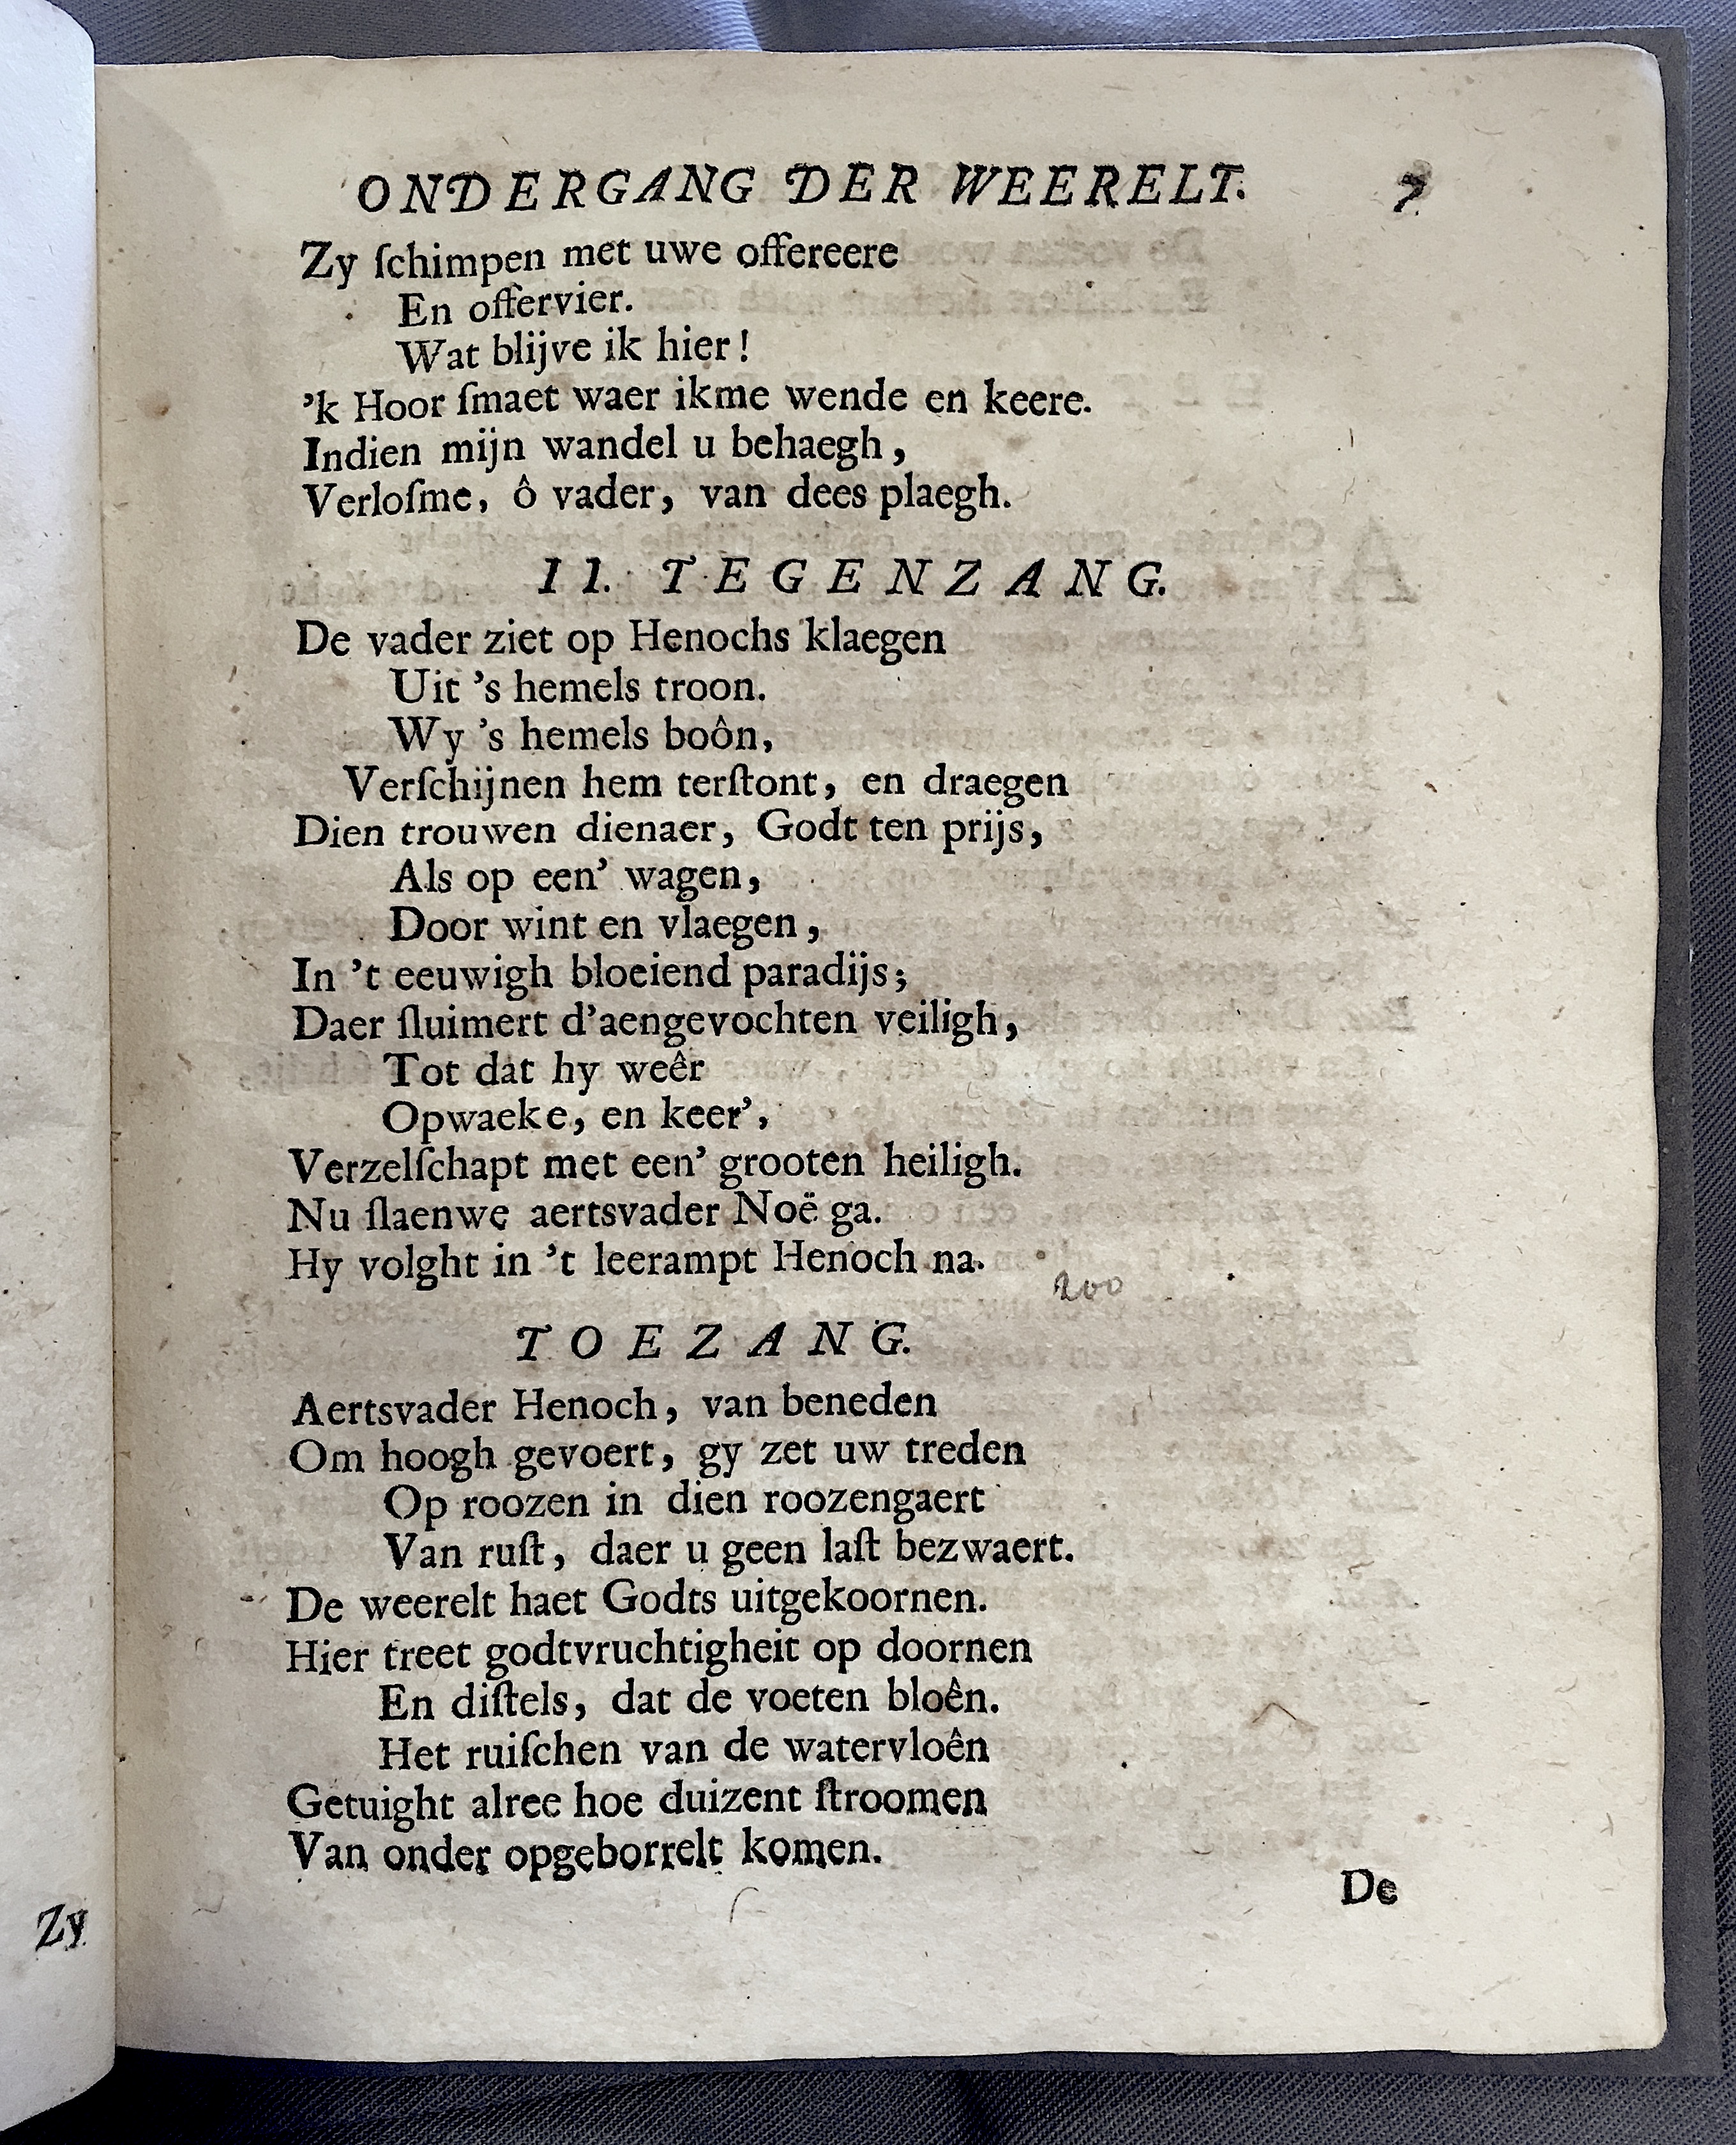 ONDERGANG DER WEERELT. 7
Zy ſchimpen met uwe offereere
En offervier.
Wat blijve ik hier!
’k Hoor ſmaet waer ikme wende en keere.
Indien mijn wandel u behaegh,
Verloſme, ô vader, van dees plaegh.
II. TEGENZANG.
De vader ziet op Henochs klaegen
Uit ’s hemels troon.
Wy ’s hemels boôn,
Verſchijnen hem terſtont, en draegen
Dien trouwen dienaer, Godt ten prijs,
Als op een’ wagen,
Door wint en vlaegen,
In ’t eeuwigh bloeiend paradijs;
Daer ſluimert d’aengevochten veiligh,
Tot dat hy weêr
Opwaeke, en keer’,
Verzelſchapt met een’ grooten heiligh.
Nu ſlaenwe aertsvader Noë ga.
Hy volght in ’t leerampt Henoch na.
200
TOEZANG.
Aertsvader Henoch, van beneden
Om hoogh gevoert, gy zet uw treden
Op roozen in dien roozengaert
Van ruſt, daer u geen laſt bezwaert.
De weerelt haet Godts uitgekoornen.
Hier treet godtvruchtigheit op doornen
En diſtels, dat de voeten bloên.
Het ruiſchen van de watervloên
Getuight alree hoe duizent ſtroomen
Van onder opgeborrelt komen.
De
Zy